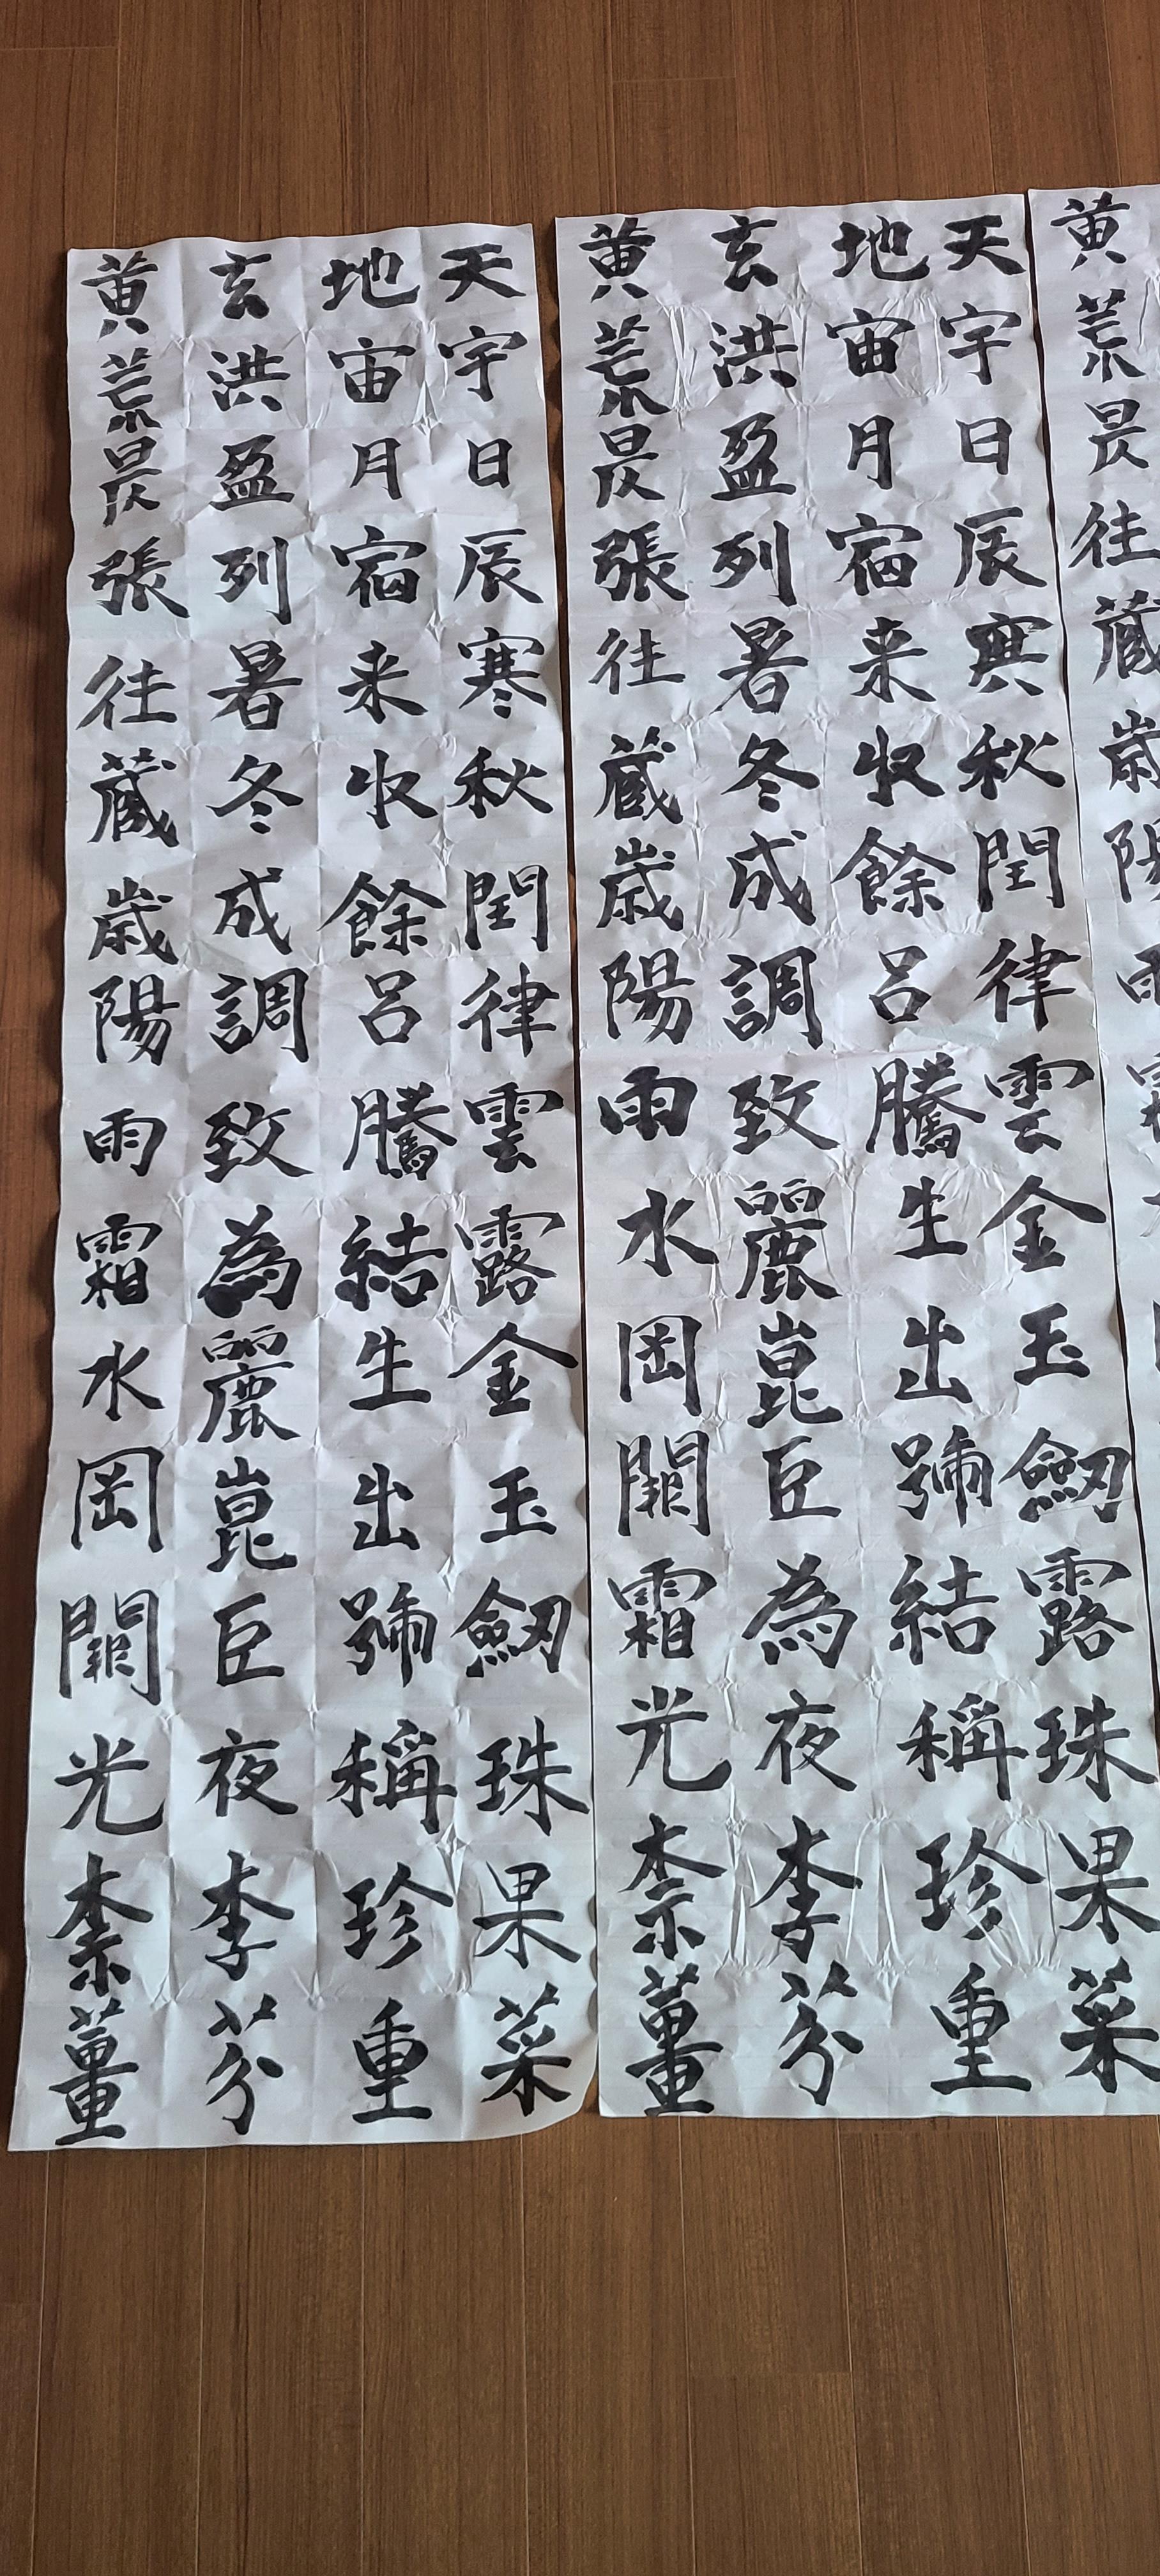 天地玄黄
宇宙洪荒
日月盈昃
辰宿列張
寒来暑往
秋收冬蔵
閏餘成歳
律呂調陽
雲騰致雨
露結為霜
金生麗水
玉出崑岡
劒號巨闕
珠稱夜光
果珍李柰
菜重芥薑
天地玄黄
宇宙洪荒
日月盈昃
辰宿列張
寒来暑往
秋收冬蔵
閏餘成歳
律呂調陽
雲騰致雨
金生麗水
玉出崑岡
劒號巨闕
露結為霜
珠稱夜光
果珍李柰
菜重芥薑
黄
荒
昃
往
蔵
歳
陽
雨